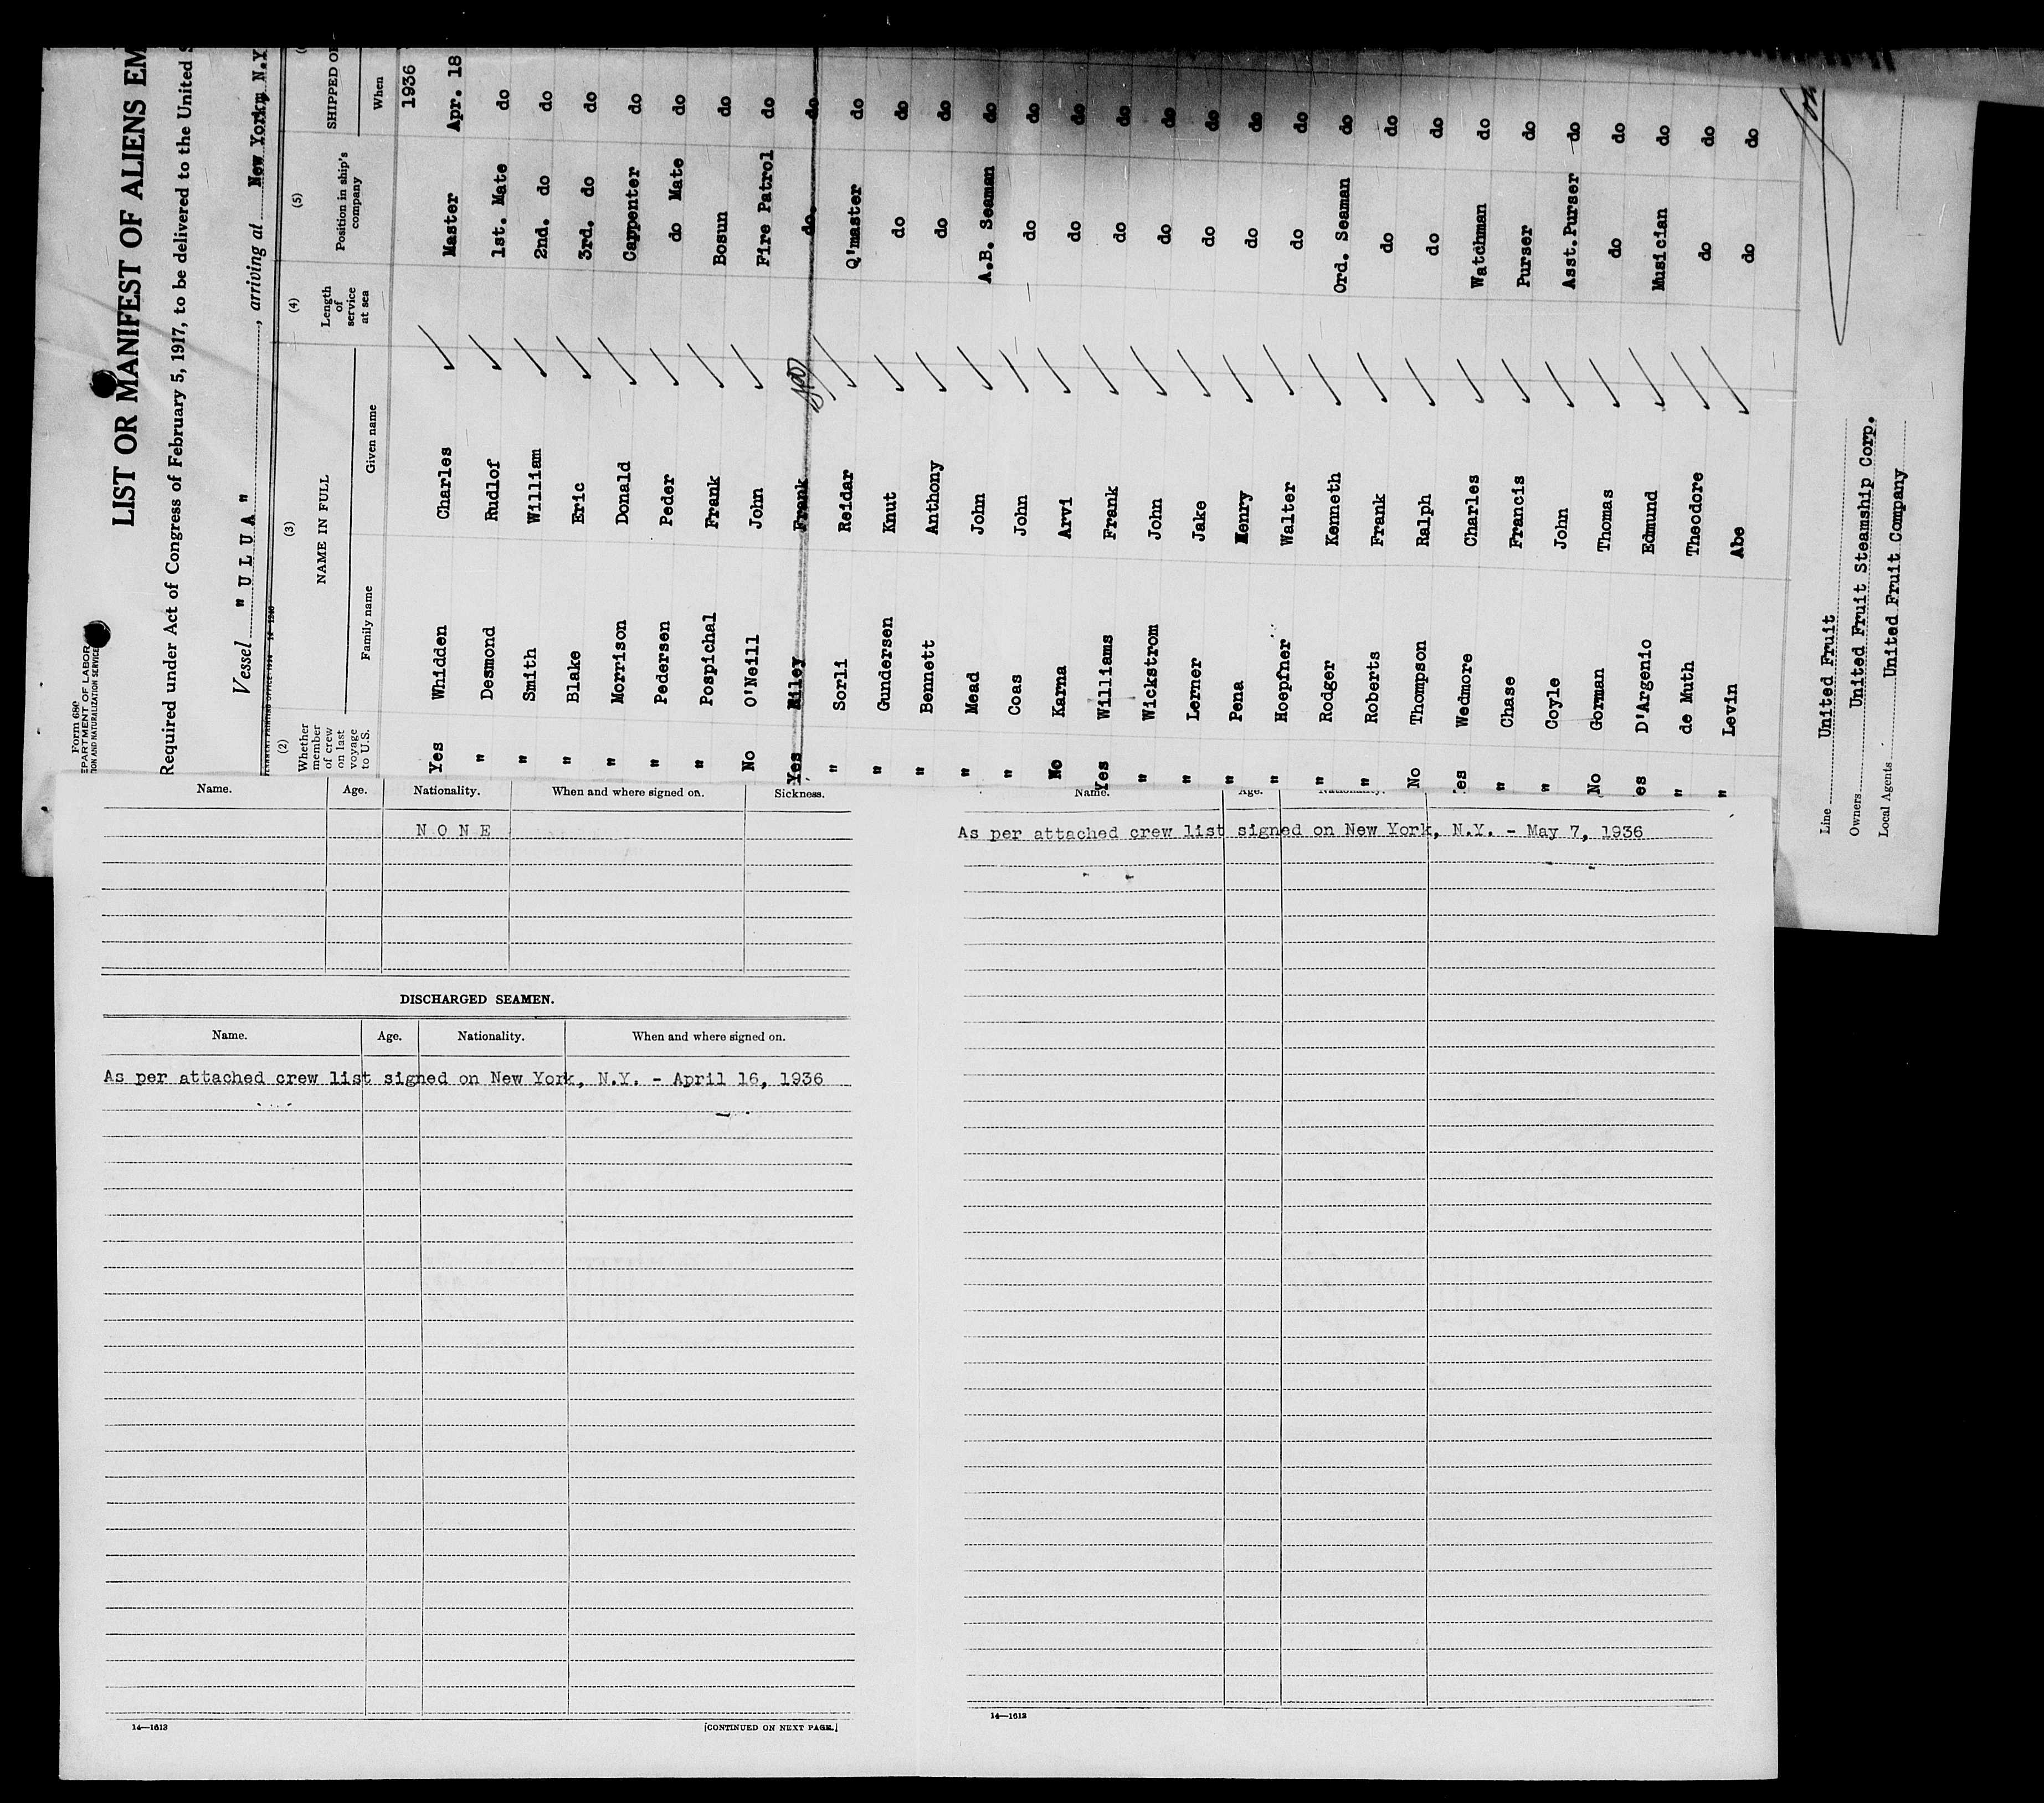 Form 680
LIST OR MANIFEST OF ALIENS EM
Required under Act of Congress of February 5, 1917, to be delivered to the United
Vessel " U L U A " , arriving at New Yorkm N.Y
(2) (3) (4) (5)
Whether member of crew on last voyage to U.S. NAME IN FULL Length of service at sea Position in ship's company SHIPPED
Family name Given name When
1936
Yes Whidden Charles Master Apr. 18
" Desmond Rudlof 1st. Mate do
" Smith William 2nd. do do
" Blake Eric 3rd. do do
" Morrison Donald Cappenter do
" Pedersen Peder do Mate do
" Pospichal Frank Bosun do
No O'Neill John Fire Patrol do
Yes Riley Frank do. do
" Sorli Reidar Q'master do
" Gundersen Knut do do
" Bennett Anthony do do
" Mead John A.B. Seaman do
" Coas John do do
No Karna Arvi do do
Yes Williams Frank do do
" Wickstrom John do do
" Lerner Jake do do
" Pena Henry do do
" Hoepfner Walter do do
" Rodger Kenneth Ord. Seaman do
" Roberts Frank do do
No Thompson Ralph do do
es Wedmore Charles Watchman do
" Chase Francis Purser do
" Coyle John Asst.Purser do
No Gorman Thomas do do
es D'Argenio Edmund Musician do
" de Muth Theodore do do
" Levin Abe do do
Line United Fruit
Owners United Fruit Steamship Corp.
Local Agents United Fruit Company
Name. Age. Nationality. When and where signed on. Sickness.
N O N E
DISCHARGED SEAMEN.
Name. Age. Nationality. When and where signed on.
As per attached crew list signed on New York, N.Y. - April 16, 1936
14—1613
[CONTINUED ON NEXT PAGE.]
Name. Age. Nationality.
As per attached crew list signed on New York, N.Y. - May 7, 1936
14—1612